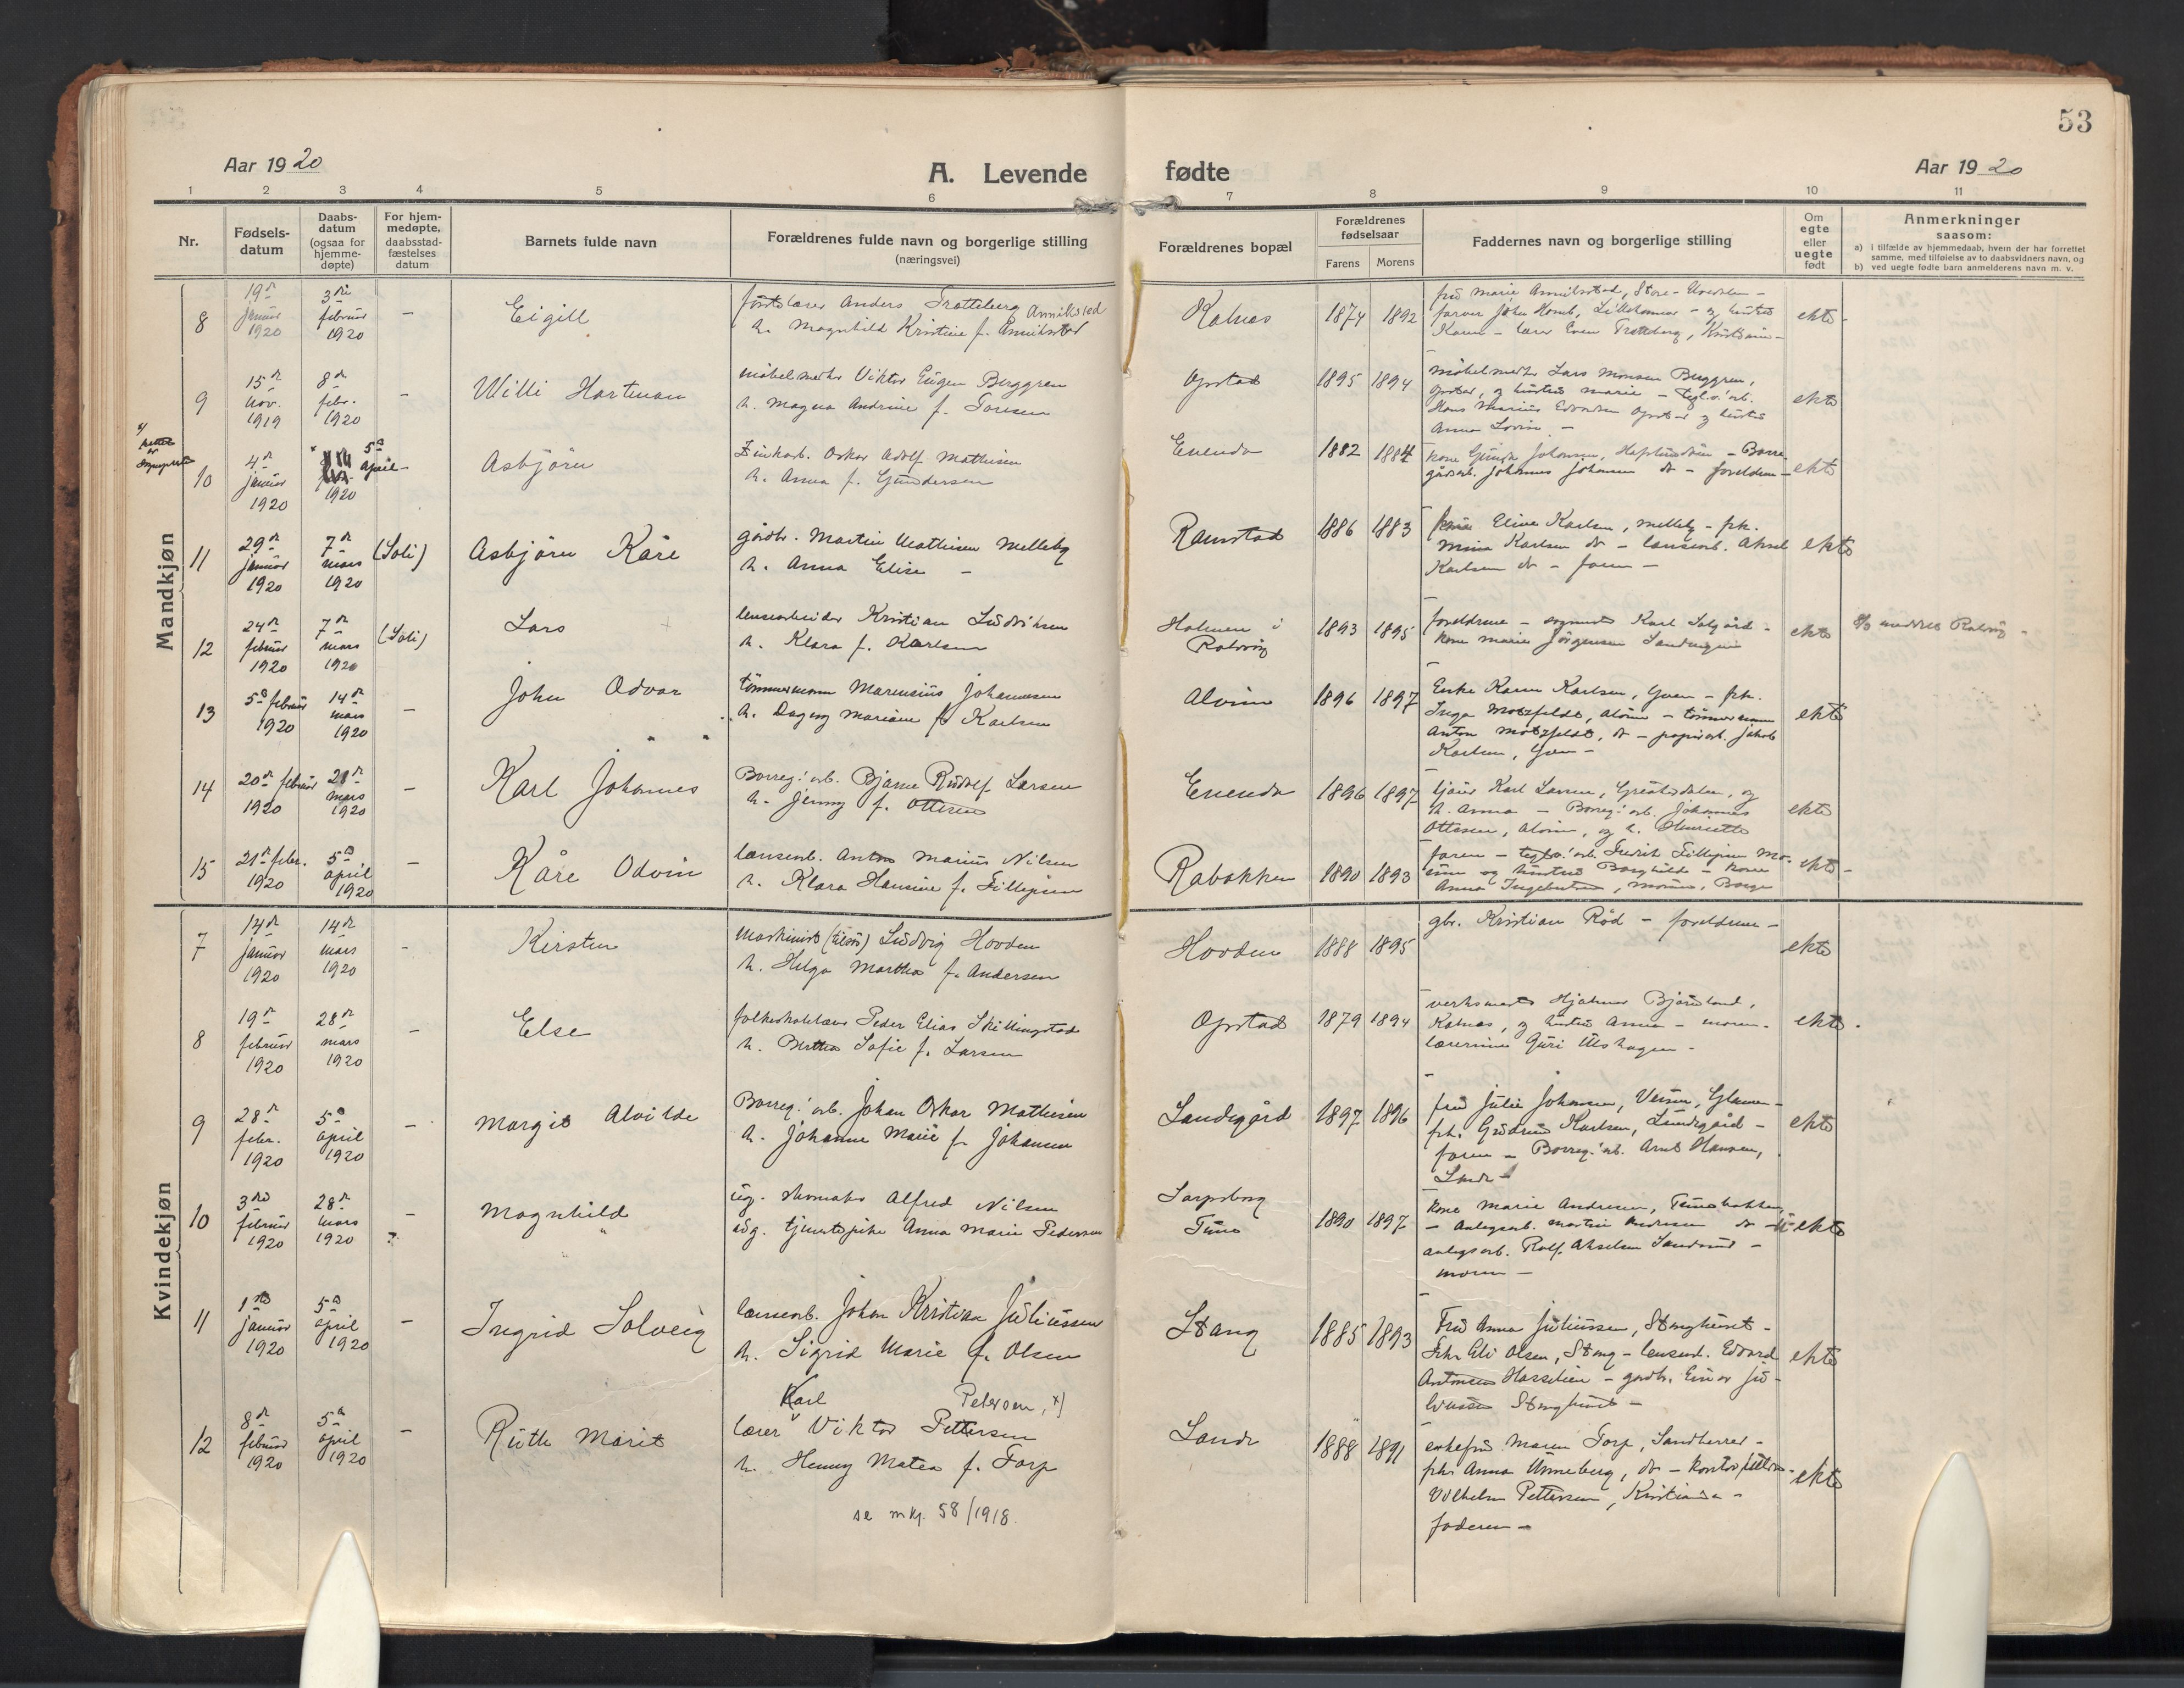 53
Aar 1920
A. Levende fødte
Aar 1920
1 2 3 4 5 6 7 8 9 10 11
Nr.
Fødsels-
datum
Daabs-
datum
(ogsaa for
hjemme-
døpte)
For hjem-
medøpte,
daabsstad-
fæstelses
datum
Barnets fulde navn
Forældrenes fulde navn og borgerlige stilling
(næringsvei)
Forældrenes bopæl
Forældrenes
fødselsaar
Farens Morens
Faddernes navn og borgerlige stilling
Om
egte
eller
uegte
født
Anmerkninger
saasom:
a) i tilfælde av hjemmedaab, hvem der har forrettet
samme, med tilføielse av to daabsvidners navn, og
b) ved uegte fødte barn anmelderens navn m. v.
Mandkjøn
8
19de januar 1920
3die februar 1920
–
Eigill
Anders Tratteberg Anniksted
h. Magnhild Kristine f.
Kalnes
1874 1892
ekte
9
15de nov. 1919
8de febr. 1920
–
Willi Hartman
Viktor Eugen Berggren
h. Magna Andrine f. Toresen
Opstad
1895 1894
møbelsnedker Lars Monsen Berggren,
Opstad, og hustru Marie – teglv. arb.
Hans Marius Opstad og hustru
Anna Lovise –
ekte
10
4de januar 1920
5te april 1920
Asbjørn
Oskar Adolf Mathisen
h. Anna f. Gundersen
Enenda
1882 1884
Johannes Johansen do – foreldrene –
ekte
11
29de januar 1920
7de mars 1920
(Soli)
Asbjørn Kåre
gårdbr. Martin Mathisen Melleby
h. Anna Elise –
Ramstad
1886 1883
Eline Karlsen, Melleby – frk.
Mina Karlsen do – lensearb. Aksel
Karlsen do – faren –
ekte
12
24de februar 1920
7de mars 1920
(Soli)
Lars
lensearbeider Kristian Ludviksen
h. Klara f. Karlsen
Holmen i
Rolvsøy
1893 1895
foreldrene – Karl Solgård –
kone Marie Jørgensen
ekte
Rolvsøy
13
5te februar 1920
14de mars 1920
–
John Odvar
tømmermann Marensius Johannesen
h. Dagny Mariane f. Karlsen
Alvim
1896 1897
Enke Karen Karlsen, Gren – frk.
Inga Motzfeldt, Alvim – tømmermann
Anton Motzfeldt, do – papirarb. Jakob
Karlsen, Gren –
ekte
14
20de februar 1920
21de mars 1920
–
Karl Johannes
Borreg. arb. Bjarne Rudolf Larsen
h. Jenny f. Ottesen
Enenda
1896 1897
Karl Larsen, Greåkerdalen, og
h. Anna – Borreg. arb. Johannes
Ottesen, Alvim, og h. Henriette
ekte
15
21de febr. 1920
5te april 1920
–
Kåre Odvin
lensearb. Anton Marius Nilsen
h. Klara Hansine f. Fillipsen
Rabakken
1890 1893
faren – teglv. arb. Fredrik Fillipsen
og hustru Borghild – kone
Anna Ingebretsen
ekte –
Kvindekjøn
7
14de januar 1920
14de mars 1920
–
Kirsten
Maskinist (tilsjøs) Ludvig Hovden
h. Helga Marthea f. Andersen
Hovden
1888 1895
gbr. Kristian Rød – foreldrene –
ekte
8
19de februar 1920
28de mars 1920
–
Else
folkeskolelærer Peder Elias Skillingstad
h. Berthea Sofie f. Larsen
Opstad
1879 1894
verksmester Hjalmar Bjørnland,
Kalnes, og hustru Anna – moren –
lærerinne Guri Ulshagen –
ekte
9
28de febr. 1920
5te april 1920
–
Margit Alvilde
Borreg. arb. Johan Oskar Mathisen
h. Johanne Marie f. Johansen
Sandsgård
1897 1896
fru Julie Johansen
frk. Gudrun Karlsen, Sandsgård –
faren – Borreg. arb. Arnt Hansen,
Sande –
ekte
10
3die februar 1920
28de mars 1920
–
?
Magnhild
ug. skomaker Alfred Nilsen
ug. tjenestepike Anna Marie Pedersen
Sarpsborg
Tune
1890 1897
Kone Marie Andersen, Tunebakken
– anlegsarb. Martin Andersen do –
anlegsarb. Rolf Akselsen Sandesund –
moren –
uekte
11
1ste januar 1920
5te april 1920
–
Ingrid Solveig
lensearb. Johan Kristian Juliussen
h. Sigrid Marie f. Olsen
Stang
1885 1893
Fru Anna Juliussen, Stanghuset –
Frk. Olsen, Stang – lensearb. Edvard
Antonsen Hasselien – gårdbr. Einar Ju-
liussen Stanghuset –
ekte
12
8de februar 1920
5te april 1920
–
Ruth Marit
Karl Petersen, x)
lærer Viktor Pettersen
h. Henny Matea f. Torp
se mkj. 58/1918.
Sande
1888 1891
enkefru Maren Torp, Sandherred –
frk. Anna Unneberg, do –
Vilhelm Pettersen, Kristiania –
faderen –
ekte